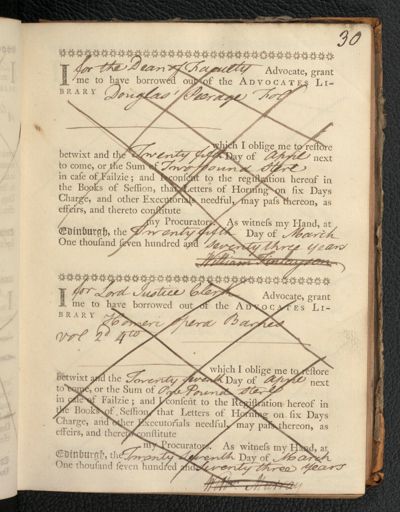 30
I for the Dean of Faculty Advocate, grant
me to have borrowed out of the ADVOCATES LI-
BRARY Douglas' Peerage Fol
which I oblige me to restore
betwixt and the Twenty fifth Day of Apple next
to come, or the Sum of Two pound Ster
in case of Failzie; and I consent to the registration hereof in
the Books of Session, that Letters of Horning on six Days
Charge, and other Executorials needful, may pass thereon, as
effeirs, and thereto constitute
my Procurators. As witness my Hand, at
Edinburgh, the Twenty fifth Day of March
One thousand seven hundred and seventy three years
William Finlayson
I for Lord Justice Clerk Advocate, grant
me to have borrowed out of the ADVOCATES LI-
BRARY Homeri Opera Barnes
vol 2d 4to
which I oblige me to restore
betwixt and the Twenty seventh Day of Apple next
to come, or the Sum of One Pound Ster
in case of Failzie; and I consent to the Registration hereof in
the Books of Session, that Letters of Horning on six Days
Charge, and other Executorials needful, may pass thereon, as
effeirs, and thereto constitute
my Procurators. As witness my Hand, at
Edinburgh, the Twenty seventh Day of March
One thousand seven hundred and seventy three years
Murray